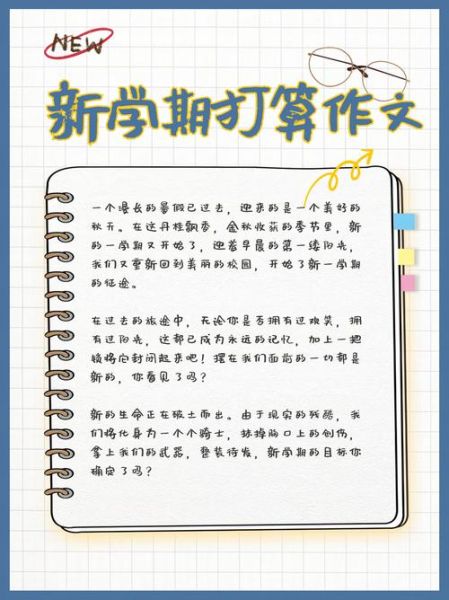 NEW
新学期打算作文
一个漫长的暑假已过去，迎来的是一个美好的
秋天。在这丹桂飘香，金秋收获的季节里，新
的一学期又开始了，迎着早晨的第一缕阳光，
我们又重新回到美丽的校园，开始了新一学期
的征途。
在过去的旅途中，无论你是否拥有过欢笑，拥
有过阳光，这都已成为永远的记忆，加上一把
锁将它封闭起来吧！摆在我们面前的一切都是
新的，你看见了吗？
新的生命正在破土而出。由于现实的残酷，我
们将化身为一个个骑士，抹掉胸口上的创伤，
拿上我们的武器，整装待发，新学期的目标你
确定了吗？